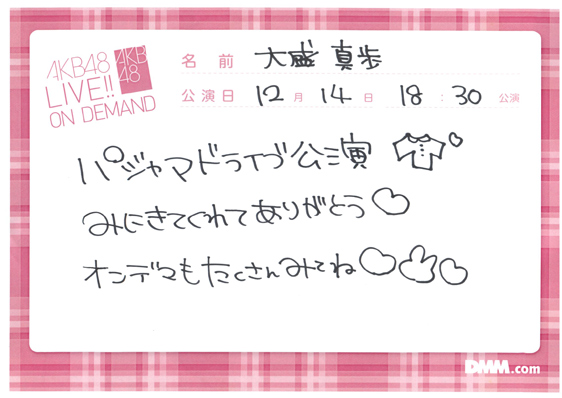 AKB48
LIVE!!
ON DEMAND
AKB
48
名前 大盛 真歩
公演日 12月 14日 18:30公演
パジャマドライブ公演
みにきてくれてありがとう♡
オンデマもたくさんみてね♡♡
DMM.com